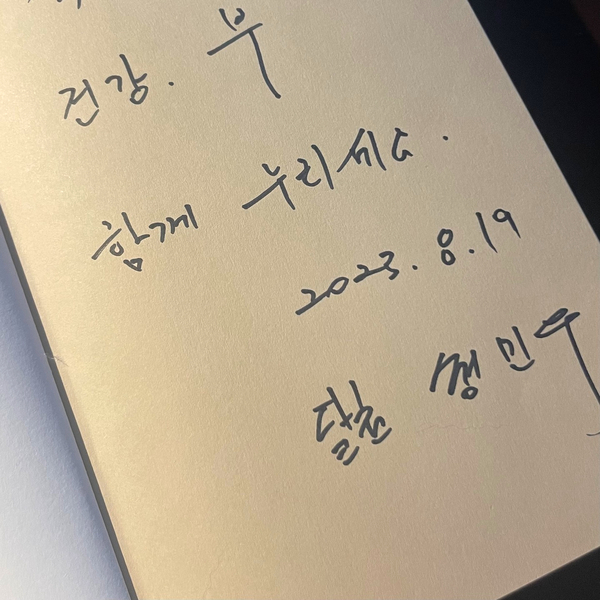 건강. 부
함께 누리세요.
2023. 8. 19
달천 정민우